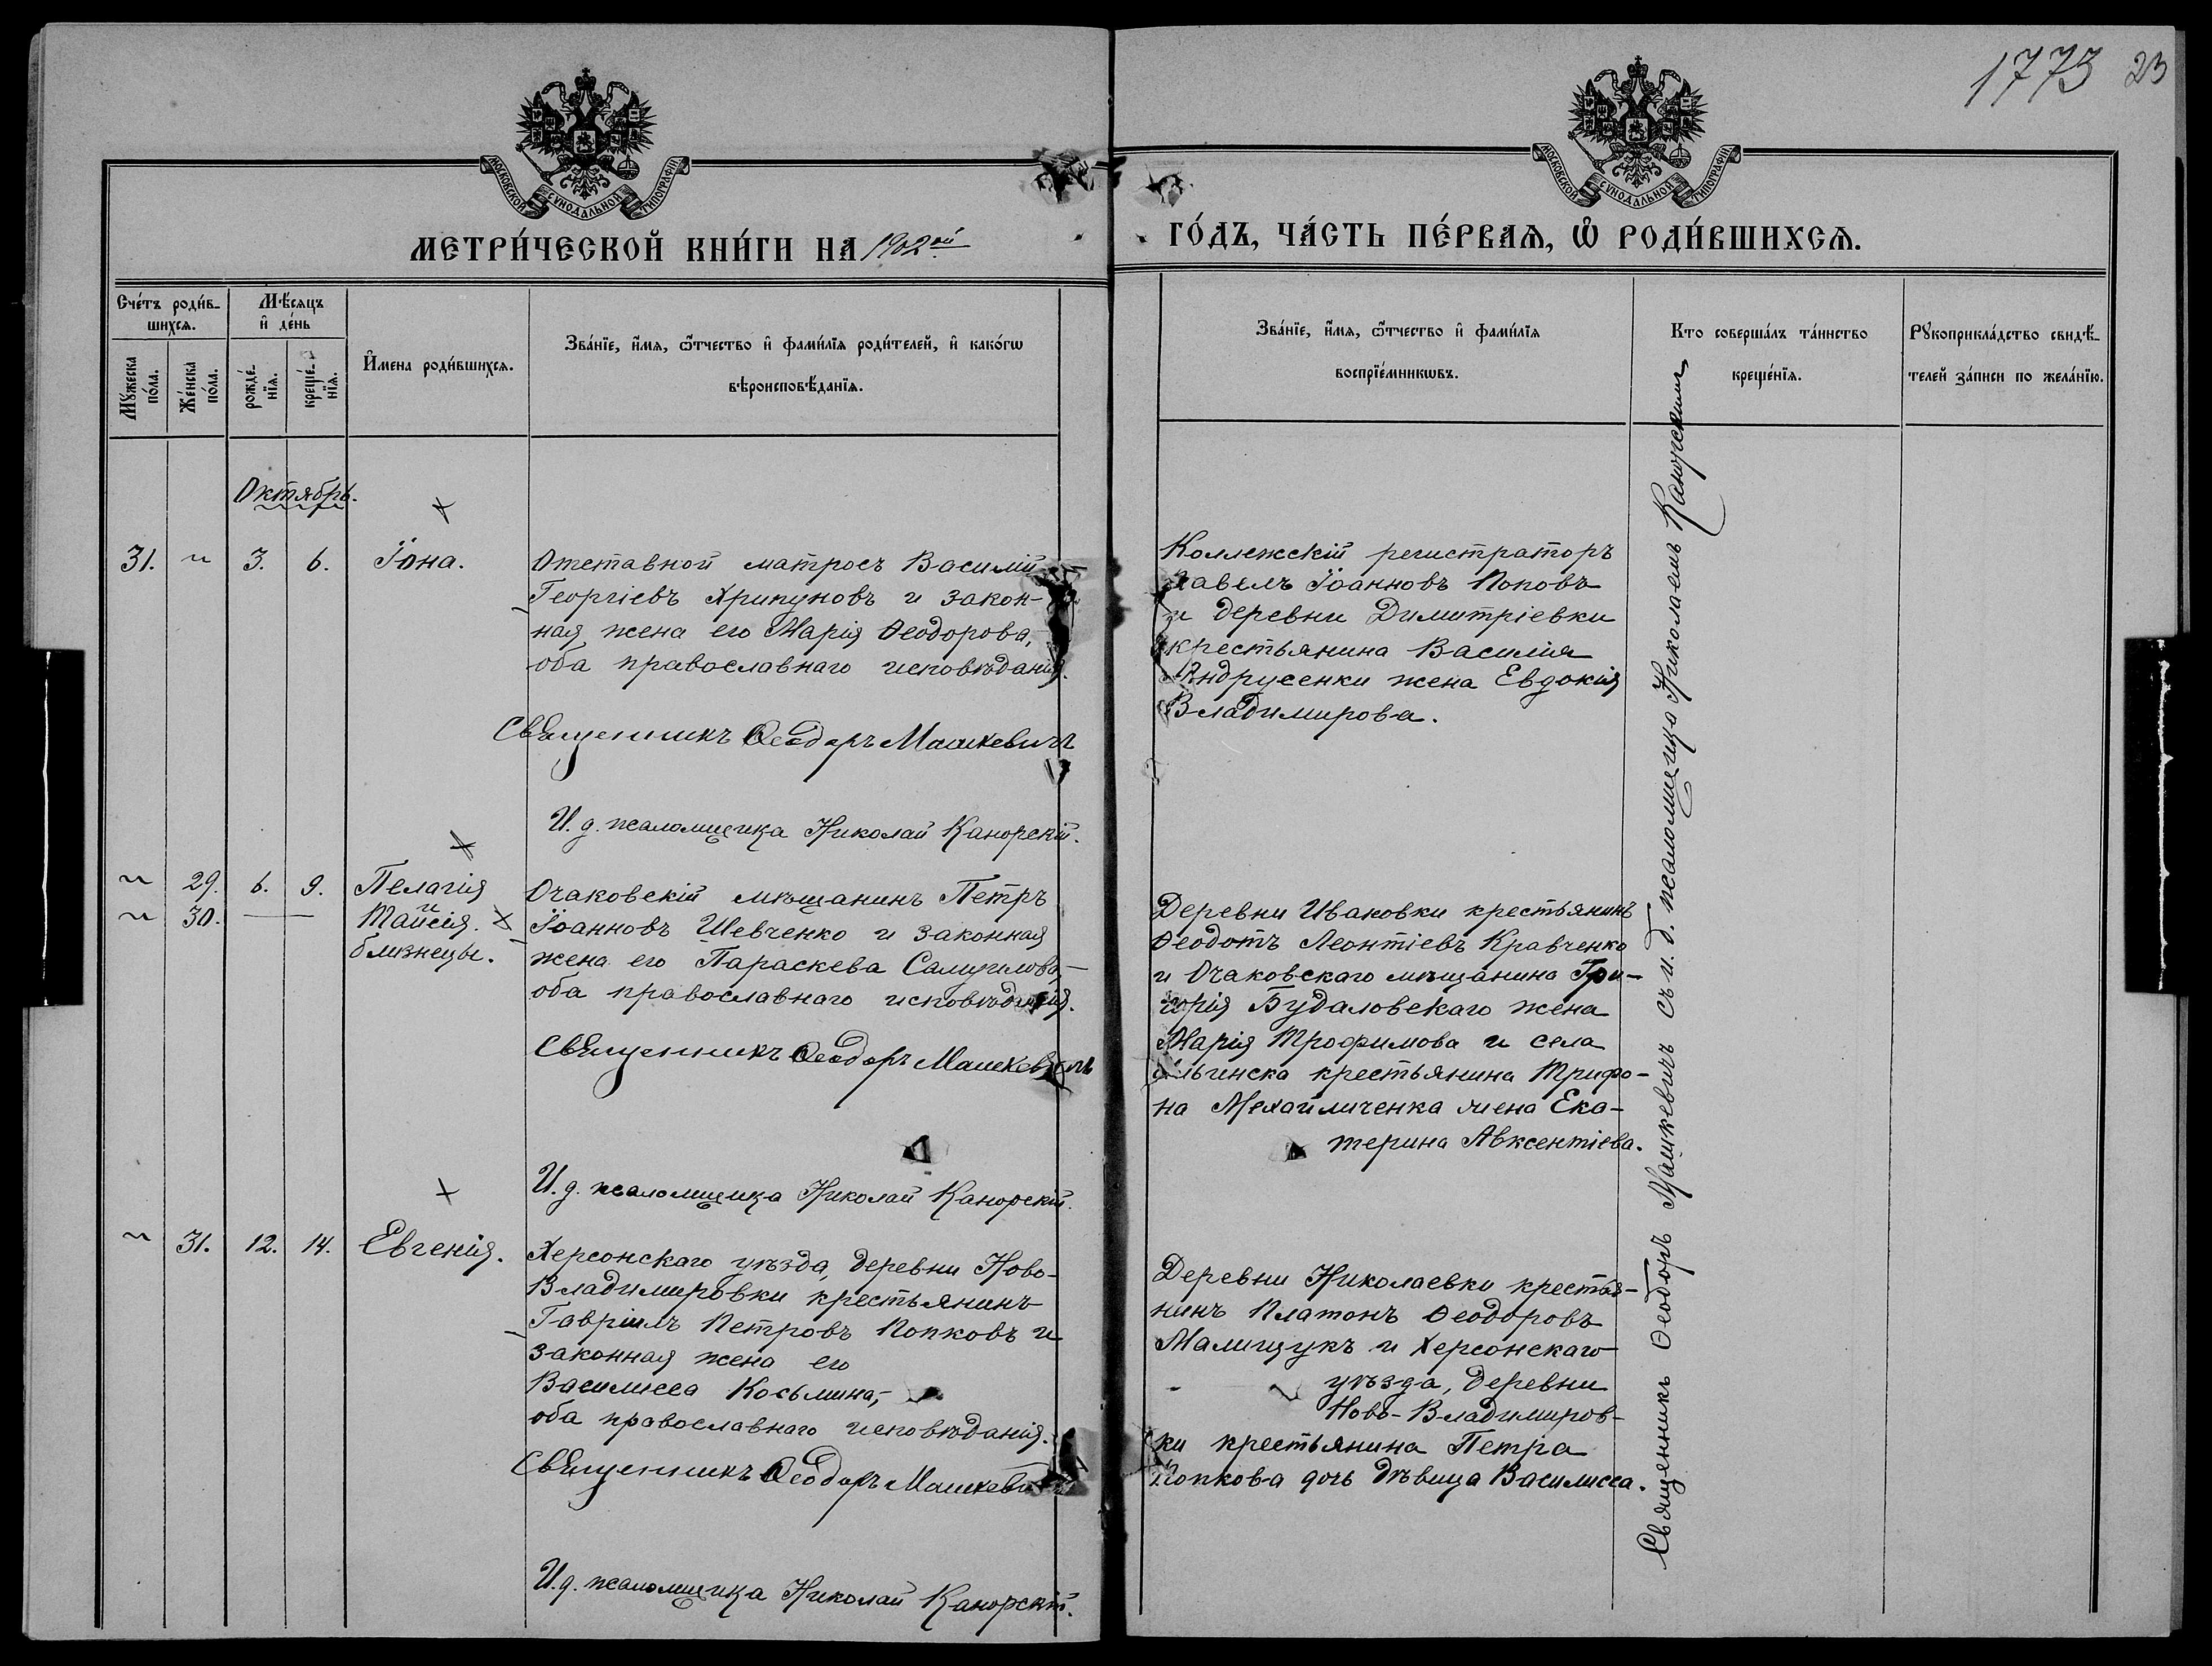 1773 23
МОСКОВСКОЙ СУНОДАЛЬНОЙ ТИПОГРАФІИ
МОСКОВСКОЙ СУНОДАЛЬНОЙ ТИПОГРАФІИ
МЕТРИ́ЧЕСКОЙ КНИ́ГИ НА 1902ой
ГО́ДЪ, ЧА́СТЬ ПЕ́РВАѦ, Ѡ҆ РОДИ́ВШИХСѦ.
Сче́тъ роди́в-
шихсѧ.
Мѣ́сѧцъ
и҆ де́нь
Мꙋжеска
по́ла.
Же́нска
по́ла.
рожде́-
нїѧ.
креще́-
нїѧ.
И҆мена роди́вшихсѧ.
Зва́нїе, и҆́мѧ, ѻ҆́тчество и҆ фами́лїѧ роди́телей, и҆ како́гѡ
вѣроисповѣ́данїѧ.
Зва́нїе, и҆́мѧ, ѻ҆́тчество и҆ фами́лїѧ
воспрїе́мникѡвъ.
Кто соверша́лъ та́инство
креще́нїѧ.
Рꙋкоприкла́дство свидѣ́-
телей за́писи по жела́нїю.
Октябрь.
31. " 3. 6. Іона.
Отставной матросъ Василій
Георгіевъ Хрипуновъ и закон-
ная жена его Марія Ѳеодорова,
оба православнаго исповѣданія.
Священникъ Ѳеодоръ Машкевичъ
И. д. псаломщика Николай Канорскій.
Коллежскій регистраторъ
Павелъ Іоанновъ Поповъ
и деревни Димитріевки
крестьянина Василія
Андрусенки жена Евдокія
Владимирова.
" 29. 6. 9. Пелагія
и
" 30. — Таисія.
близнецы.
Очаковскій мѣщанинъ Петръ
Іоанновъ Шевченко и законная
жена его Параскева Самуилова,
оба православнаго исповѣданія.
Священникъ Ѳеодоръ Машкевичъ
И. д. псаломщика Николай Канорскій.
Деревни Ивановки крестьянинъ
Ѳеодотъ Леонтіевъ Кравченко
и Очаковскаго мѣщанина Гри-
горія Будаловскаго жена
Марія Трофимова и села
крестьянина Трифо-
на Михайличенка жена Ека-
терина Авксентіева.
" 31. 12. 14. Евгенія.
Херсонскаго уѣзда, деревни Ново-
Владимировки крестьянинъ
Гавріилъ Петровъ Попковъ и
законная жена его
Василисса Косьмина,
оба православнаго исповѣданія.
Священникъ Ѳеодоръ Машкевичъ
И. д. псаломщика Николай Канорскій.
Деревни Николаевки крестья-
нинъ Платонъ Ѳеодоровъ
Малищукъ и Херсонскаго
уѣзда, деревни
Ново-Владимиров-
ки крестьянина Петра
Попкова дочь дѣвица Василисса.
Священникъ Ѳеодоръ Машкевичъ съ и. д. псаломщика Николаемъ Канорскимъ